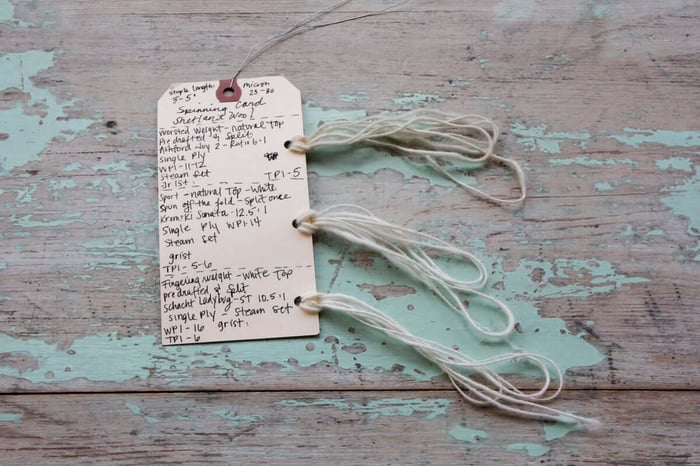 Staple Length: micron
3-5" 23-30
Spinning Card
Shetland Wool
Worsted weight - natural Top
Predrafted & Split
Ashford Joy 2 - Ratio 6:1
Single Ply
WPI-11-12
Steam Set
grist TPI-5
Sport - natural Top - White
Spun off the fold - Split once
Kromski Sonata - 12.5:1
Single Ply WPI-14
Steam Set
grist
TPI - 5-6
Fingering weight - White Top
predrafted & Split
Schacht Ladybug - ST 10.5:1
Single Ply - Steam Set
WPI-16 grist:
TPI-6